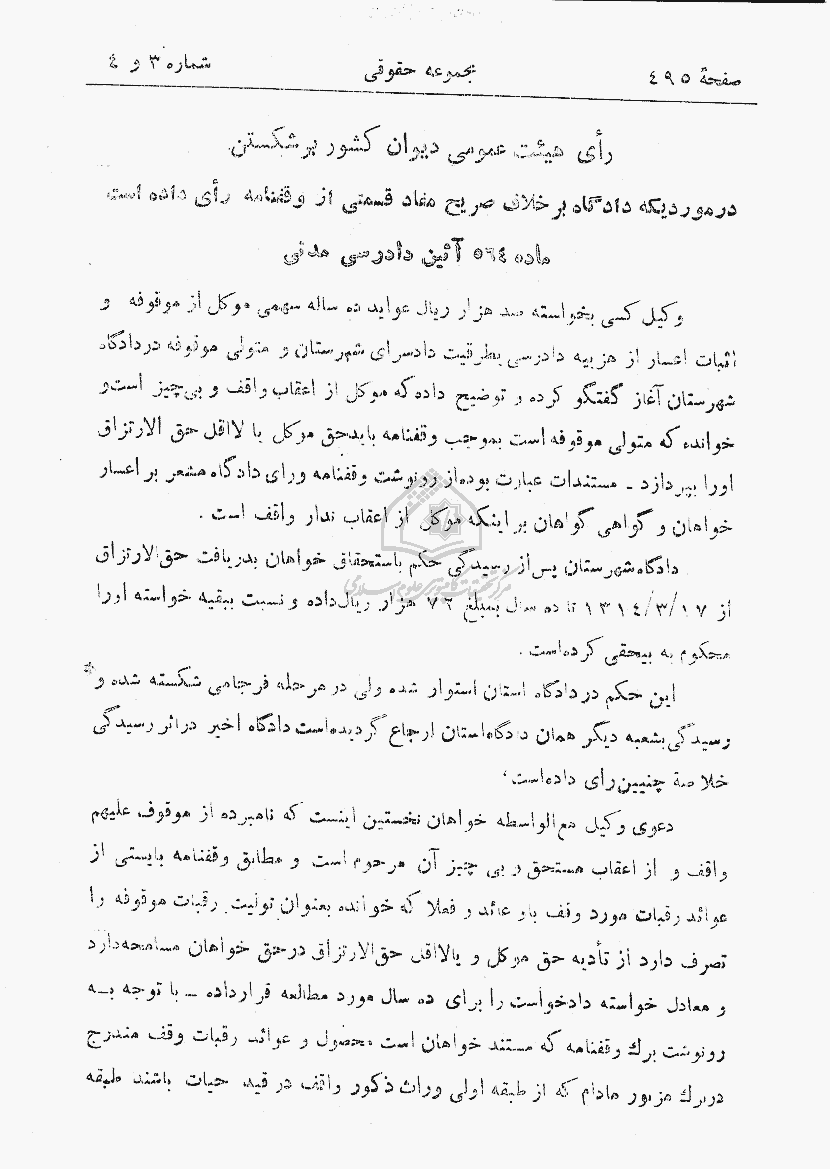 صفحهٔ ٤٩٥ مجموعه حقوقی شماره ٣ و ٤
رأی هیئت عمومی دیوان کشور برشکستن
درموردیکه دادگاه برخلاف صریح مفاد قسمتی از وقفنامه رأی داده است
ماده ٥٦٤ آئین دادرسی مدنی
وکیل کسی بخواسته صد هزار ریال عواید ده ساله سهمی موکل از موقوفه و
اثبات اعسار از هزینه دادرسی بطرفیت دادسرای شهرستان و متولی موقوفه دردادگاه
شهرستان آغاز گفتگو کرده و توضیح داده که موکل از اعقاب واقف و بی‌چیز است و
خوانده که متولی موقوفه است بموجب وقفنامه باید حق موکل یا لااقل حق الارتزاق
اورا بپردازد ـ مستندات عبارت بوده از رونوشت وقفنامه ورای دادگاه مشعر بر اعسار
خواهان و گواهی گواهان بر اینکه موکل از اعقاب ندار واقف است .
دادگاه شهرستان پس از رسیدگی حکم باستحقاق خواهان بدریافت حق‌الارتزاق
از ١٣١٤/٣/١٧ تا ده سال بمبلغ ٧٢ هزار ریال داده و نسبت ببقیه خواسته اورا
محکوم به بیحقی کرده است .
این حکم در دادگاه استان استوار شده ولی در مرحله فرجامی شکسته شده و*
رسیدگی بشعبه دیگر همان دادگاه استان ارجاع گردیده است دادگاه اخیر دراثر رسیدگی
خلاصة چنیین رای داده است٬
دعوی وکیل مع‌الواسطه خواهان نخستین اینست که نامبرده از موقوف علیهم
واقف و از اعقاب مستحق و بی چیز آن مرحوم است و مطابق وقفنامه بایستی از
عوائد رقبات مورد وقف باو عائد و فعلا که خوانده بعنوان تولیت رقبات موقوفه را
تصرف دارد از تأدیه حق موکل و یالااقل حق‌الارتزاق درحق خواهان مسامحه دارد
و معادل خواسته دادخواست را برای ده سال مورد مطالعه قرارداده ـ با توجه بـه
رونوشت برك وقفنامه که مستند خواهان است محصول و عوائد رقبات وقف مندرج
دربرك مزبور مادام که از طبقه اولی وراث ذکور واقف در قید حیات باشند طبقه